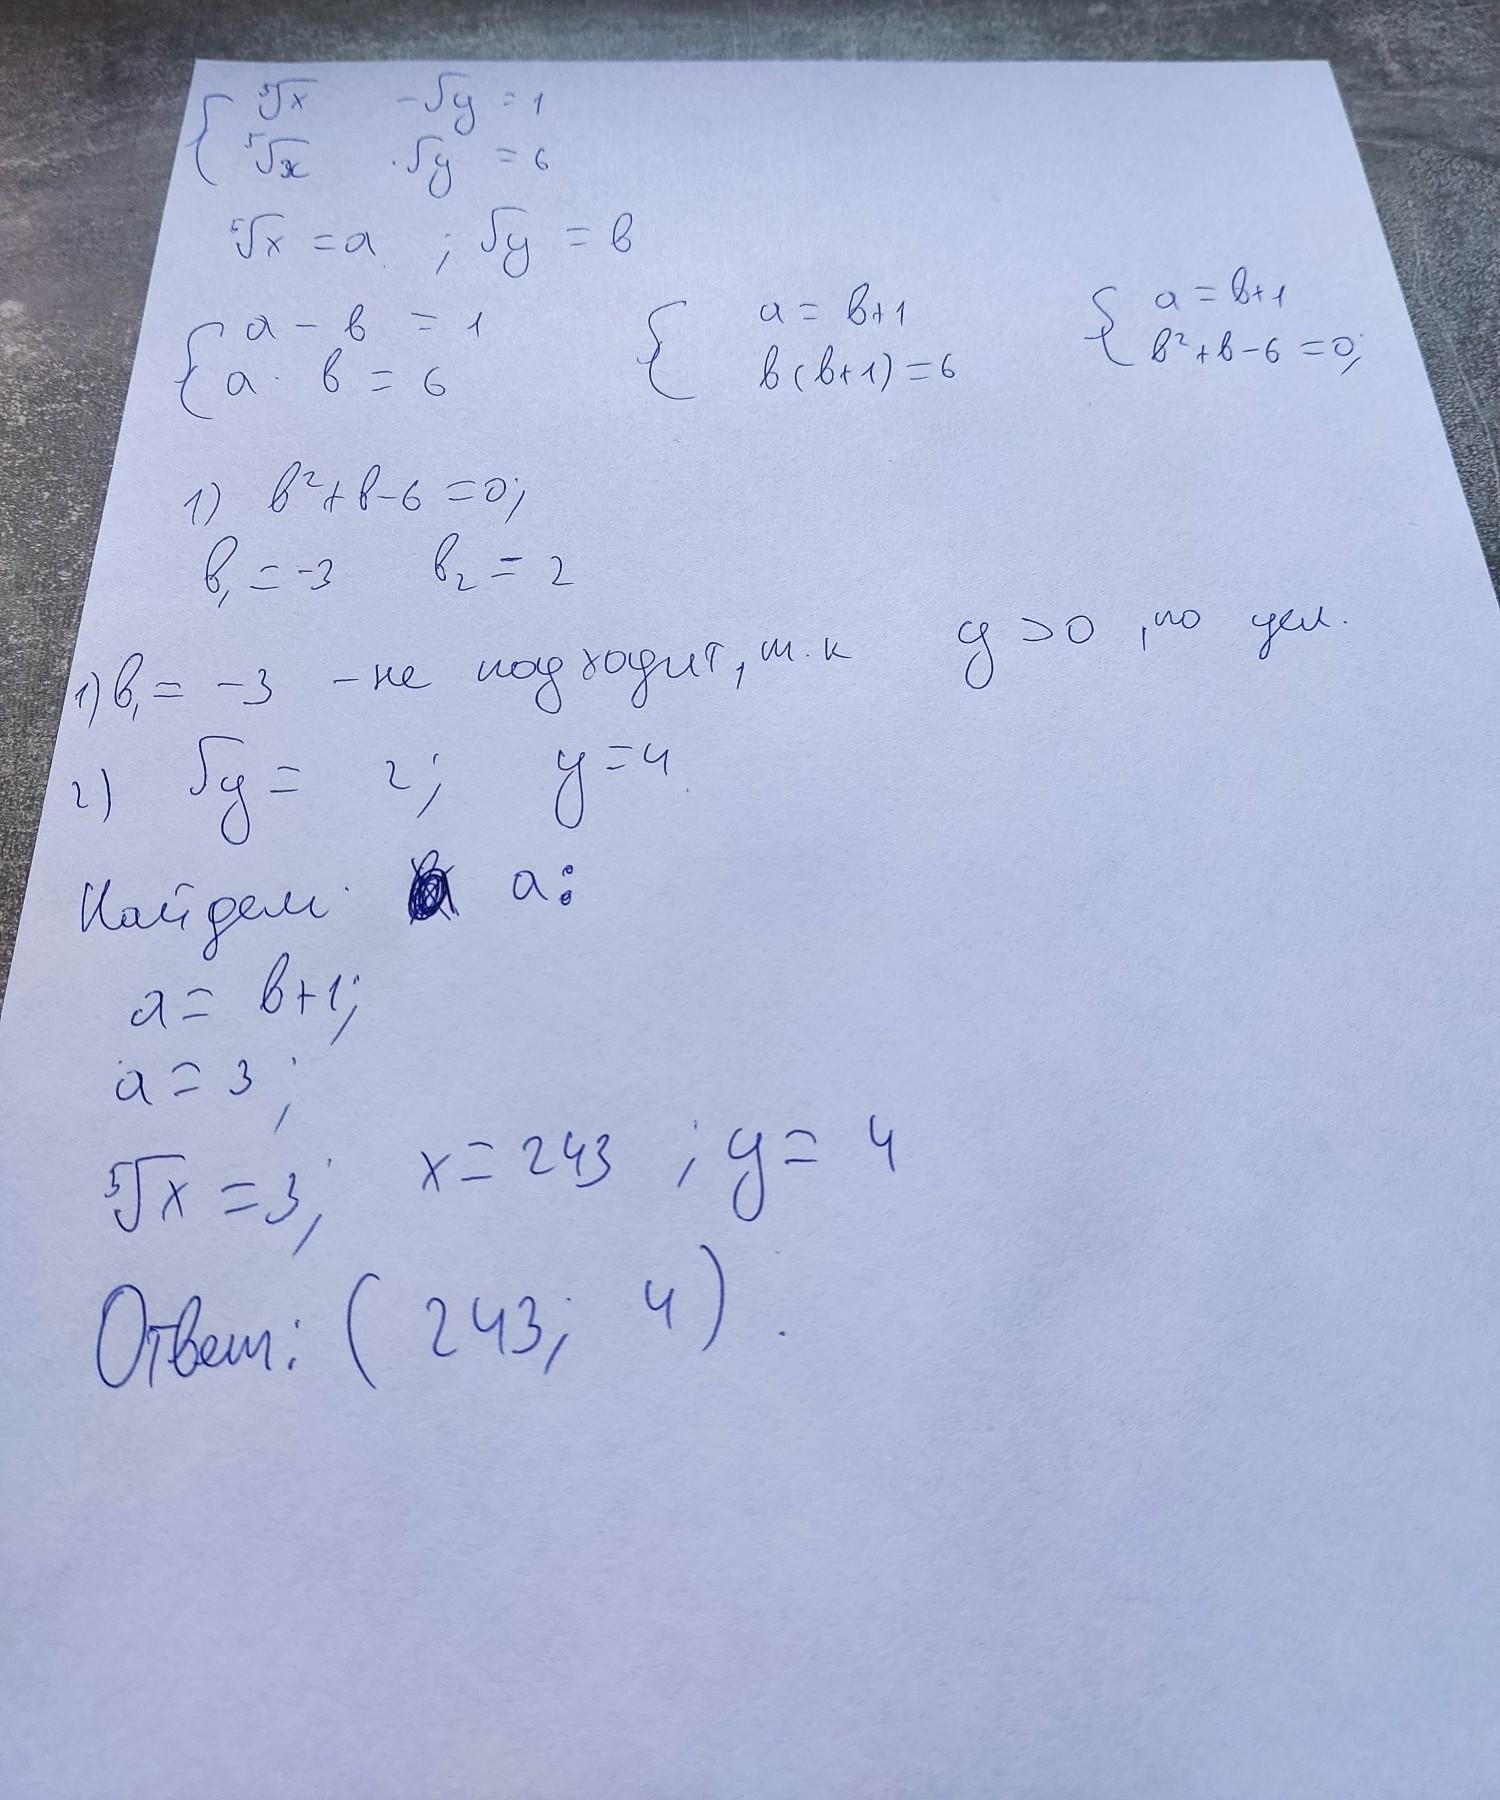 { ⁵√x - √y = 1
⁵√x · √y = 6
⁵√x = a ; √y = b
{ a - b = 1 { a = b+1 { a = b+1
a · b = 6 b(b+1) = 6 b²+b-6 = 0;
1) b²+b-6 = 0;
b₁ = -3 b₂ = 2
1) b₁ = -3 - не подходит, т.к y > 0, по усл.
2) √y = 2; y = 4
Найдем a:
a = b+1;
a = 3;
⁵√x = 3; x = 243 ; y = 4
Ответ: (243; 4).